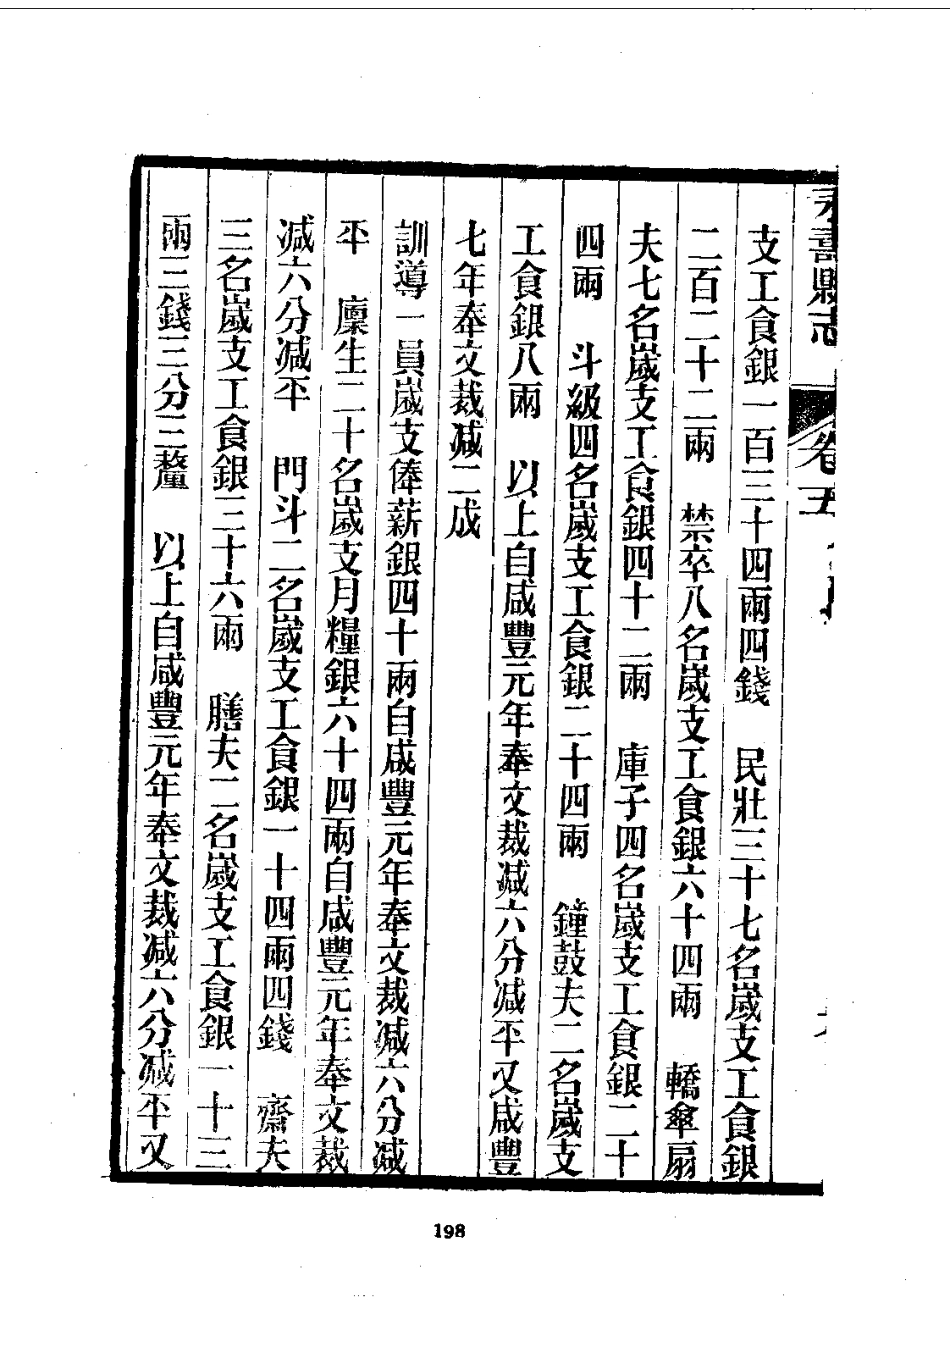 壽縣志 卷五
支工食銀一百三十四兩四錢　民壯三十七名嵗支工食銀
二百二十二兩　禁卒八名嵗支工食銀六十四兩　轎傘扇
夫七名嵗支工食銀四十二兩　庫子四名嵗支工食銀二十
四兩　斗級四名嵗支工食銀二十四兩　鐘鼓夫二名嵗支
工食銀八兩　以上自咸豐元年奉文裁减六分减平又咸豐
七年奉文裁减二成
訓導一員嵗支俸薪銀四十兩自咸豐元年奉文裁减六分减
平　廩生二十名嵗支月糧銀六十四兩自咸豐元年奉文裁
减六分减平　門斗二名嵗支工食銀一十四兩四錢　齋夫
三名嵗支工食銀三十六兩　膳夫二名嵗支工食銀一十三
兩三錢三分三釐　以上自咸豐元年奉文裁减六分减平又
198